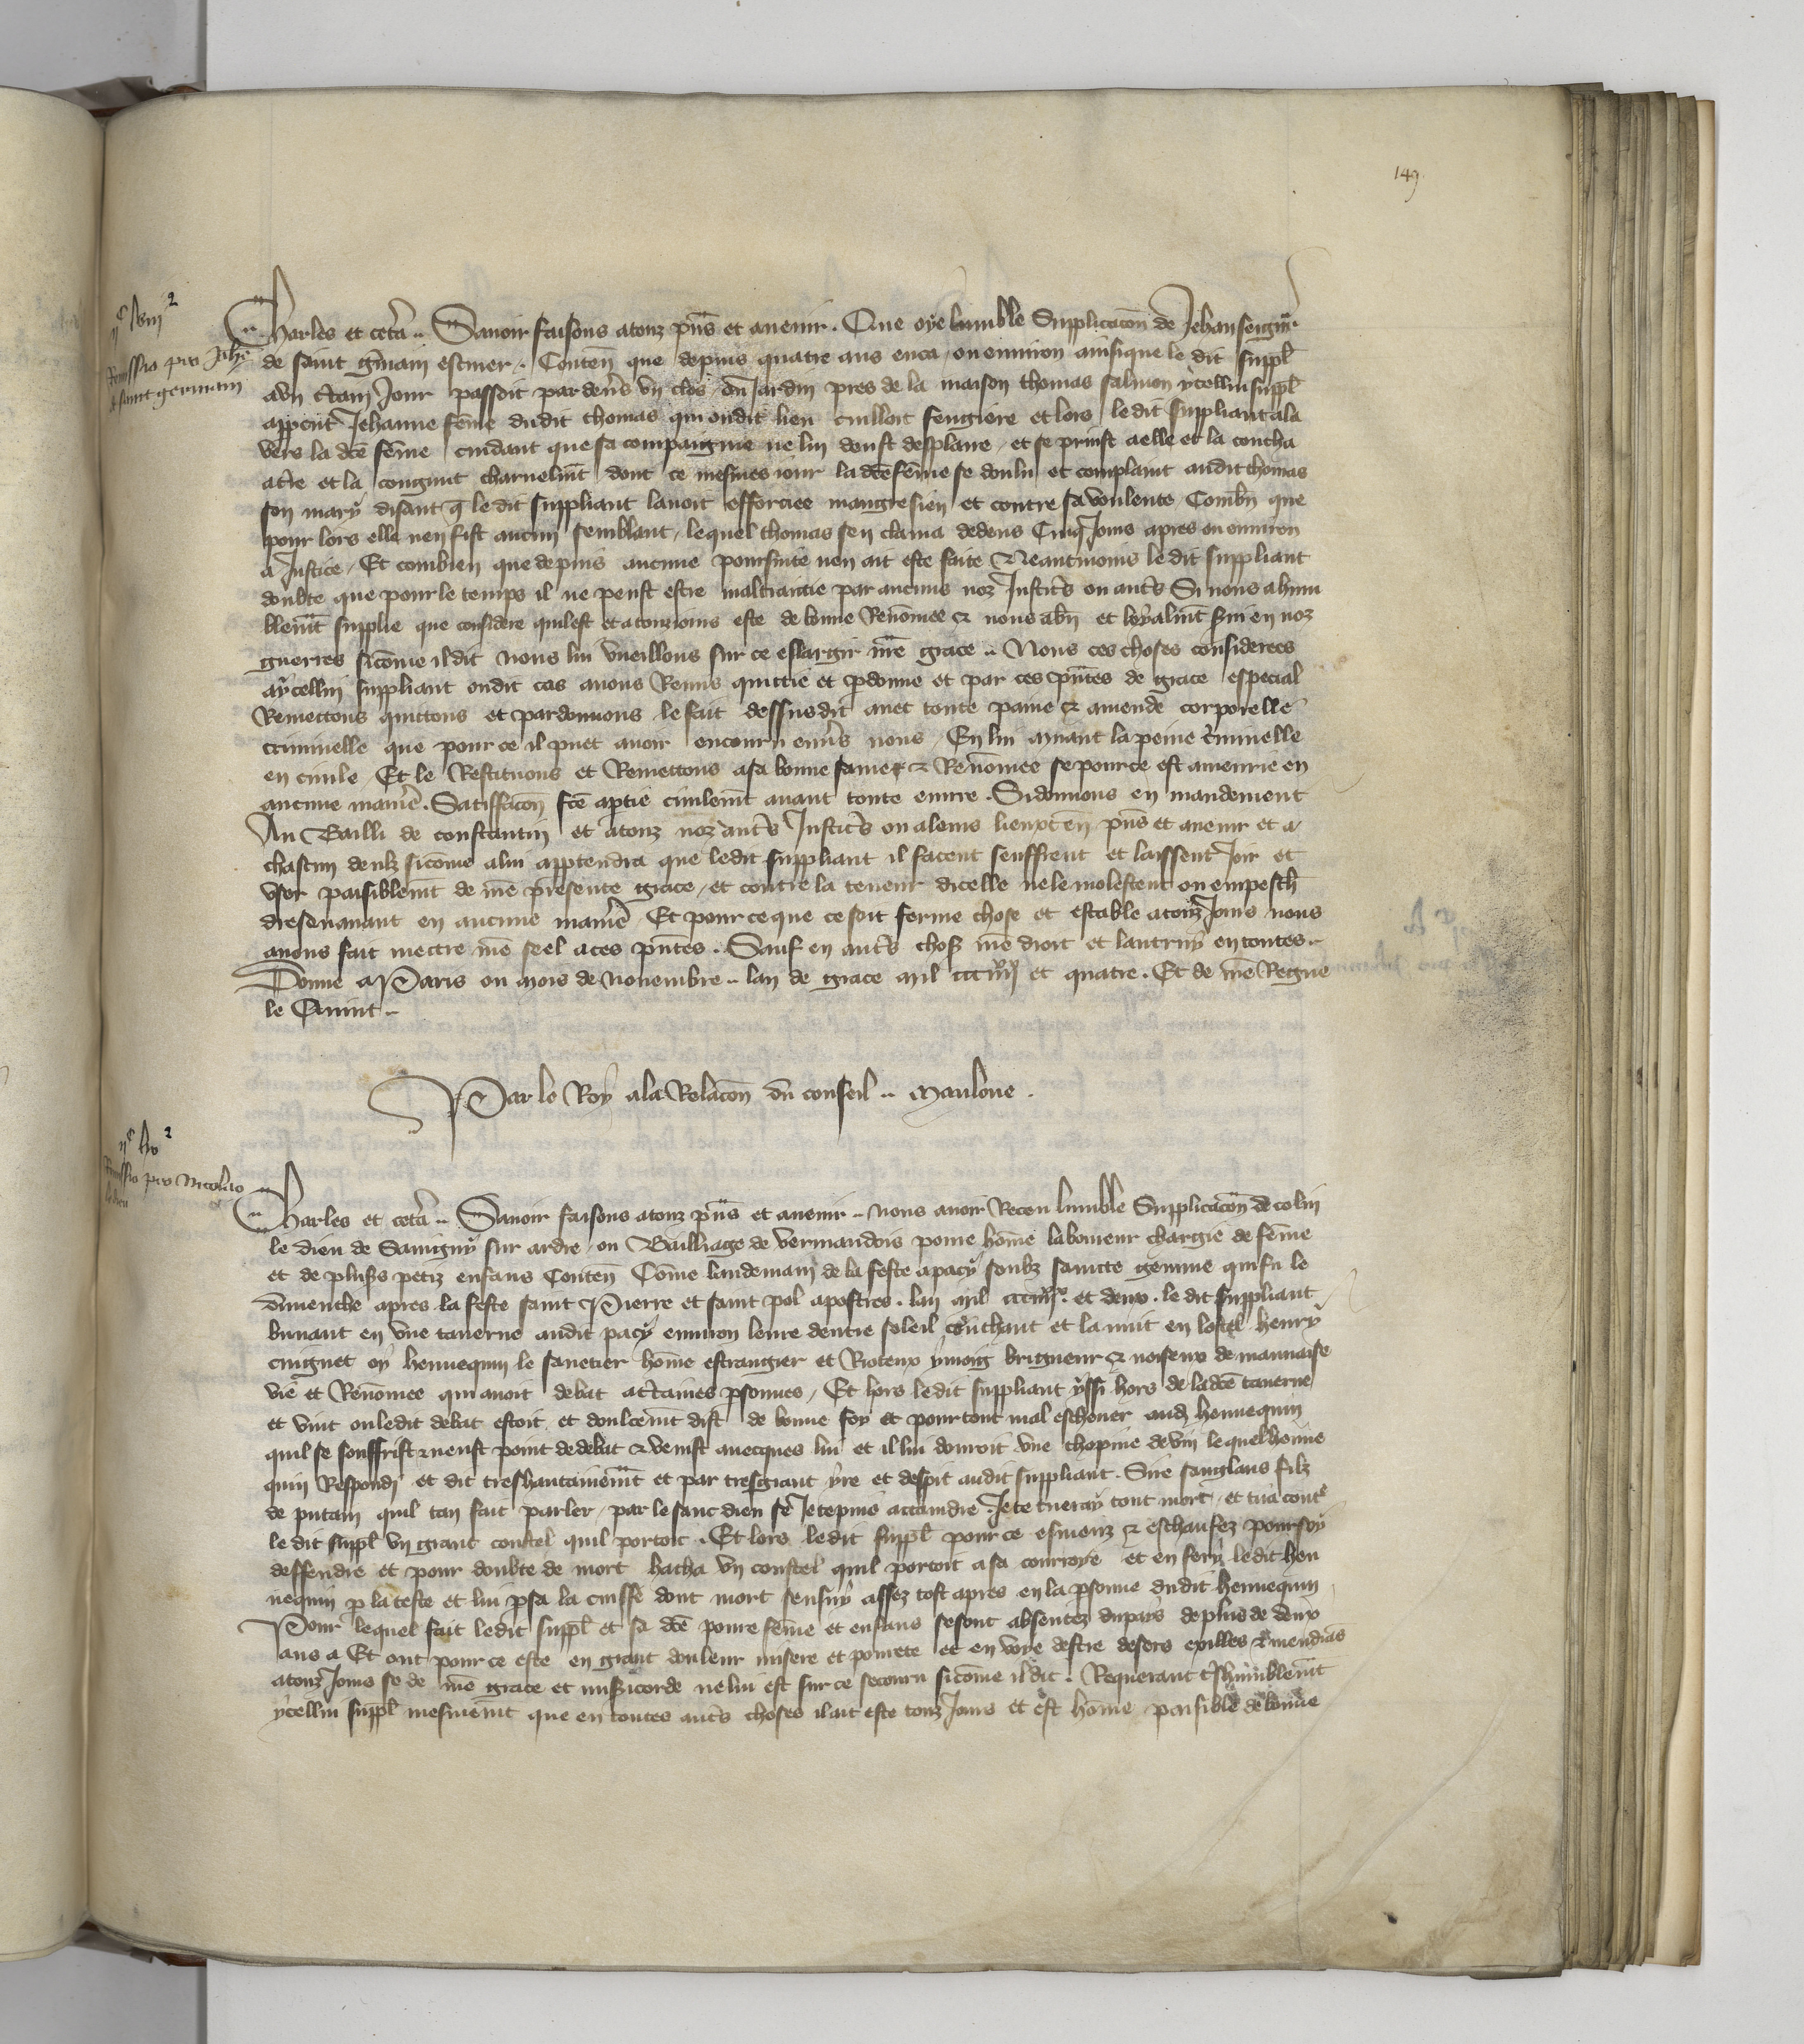 149
Charles et cetera. Savoir faisons a touz pñs et avenir. Que oye lumble Supplicacõn de Jehan seignr̃
de saint gẽrmain escuier. Conteñ que depuis quatre ans enca ou environ ainsique le dit suppl̃
a un c̃tain Jour passoit par dev̾s un clos ou Jardin pres de la maison thomas salmon ycellui suppl̃
apperceut Jehanne fem̃e dudit thomas qui oudit lieu cuilloit feugiere et lors ledit suppliant ala
vers la dc̃e fem̃e cuidant que sa compaignie ne lui deust desplaire et se prinst a elle et la coucha
a t̾re et la congnut charnelm̃t dont ce mesmes iour la dc̃e fem̃e se doulu et complaint audit thomas
son mary disant q̃ le dit suppliant lavoit efforciee maugre sien et contre sa voulente Comb̃n que
pour lors elle nen fist aucun semblant lequel thomas sen clama dedens Cinq Jours apres ou environ
a Justice Et combien que depuis aucune poursuite nen ait este faite Neantmoins le dit suppliant
doubte que pour le temps il ne peust estre maltraictie par aucuns noz Justic̾s ou aut̾s Si nous a hum
blem̃t supplie que considere quil est et a touzjours este de bonne Renom̃ee & nous a bñ et loyalm̃t s̾vi en noz
guerres sicom̃e il dit nous lui vueillons sur ce eslargir nr̃e grace Nous ces choses considerees
aycellui suppliant oudit cas avons Remis quittie et p̱donne et par ces pñtes de grace especial
Remettons quittons et pardonnons le fait dessusdit avec toute paine & amende corporelle
criminelle que pour ce il puet avoir encouru env̾s nous En lui muant la peine c̾minelle
en civile Et le Restituons et Remettons a sa bonne fame & Renom̃ee se pource est amenrie en
aucune manie̾. Satisfacõn fc̃e a p̱tie civilem̃t avant toute euvre. Si donnons en mandement
Au Bailli de constantin et a touz noz aut̾s Justic̾s ou a leurs lieuxteñ pñs et avenir et a
chascun deulx sicome a lui appartendra que ledit suppliant il facent seuffrent et laissent Joir et
user paisiblem̃t de nr̃e presente grace et contre la teneur dicelle ne le molestent ou empesch̃
doresenavant en aucune manie̾ Et pour ce que ce soit ferme chose et estable a touz Jours nous
avons fait mectre nr̃e seel a ces pñtes. Sauf en aut̾s choses nr̃e droit et lautruy en toutes
Donne a Paris ou mois de Novembre lan de grace mil ccc iiijxx et quatre. Et de nr̃e Regne
le Quint
Par le Roy a la Relacõn du conseil Maulone.
Remissio pro Nicolao
le dieu
Charles et cetera Savoir faisons a touz pñs et avenir nous avoir Receu lumble Supplicacõn de colin
le dieu de Savigny sur ardre ou Bailliage de vermandois povre hom̃e laboureur chargie de fem̃e
et de plus̾s petiz enfans Conteñ Com̃e landemain de la feste a pacy soubz saincte gemme qui fu le
dimenche apres la feste saint Pierre et saint pol apostres. lan mil ccc iiijxx et deux. le dit suppliant
buvant en une taverne audit pacy environ leure dentre soleil couchant et la nuit en lostel henry
cuignet oy hennequin le savetier hom̃e estrangier et Rioteux brigueur & noiseux de mauvaise
vie et Renom̃ee qui avoit debat a c̃taines p̱sonnes Et lors ledit suppliant yssi hors de ladc̃e taverne
et vint ou ledit debat estoit et doulcem̃t dist de bonne foy et pour tout mal eschever aud̾ hennequin
quil se souffrist & neust point de debat & venist avecques lui et il lui donroit une chopine de vin lequel henne
quin Respondi et dit treshautainem̃t et par tresgrant yre et despit audit suppliant. Sire sanglans filz
de putain quil ten fait parler par le sanc dieu se Je te puis attaindre Je te tueray tout mort et tira cont̾
le dit suppl̃ un grant coustel quil portoit. Et lors ledit suppl̃ pour ce esmeuz & eschaufez pour soy
deffendre et pour doubte de mort sacha un coustel quil portoit a sa courroye et en fery ledit hen
nequin p̱ la teste et lui p̱sa la cuisse dont mort sensuy assez tost apres en la p̱sonne dudit hennequin
Pour lequel fait ledit suppl̃ et sa dc̃e povre fem̃e et enfans se sont absentez du pays de plus de deux
ans a Et ont pour ce este en grant douleur misere et povrete et en voye destre desers exilles & mendians
a touz Jours se de nr̃e grace et mis̾icorde ne lui est sur ce secouru sicom̃e il dit. Requerant t̾shumblem̃t
ycellui suppl̃ mesmem̃t que en toutes aut̾s choses il ait este touz Jours et est hom̃e paisible de bonne